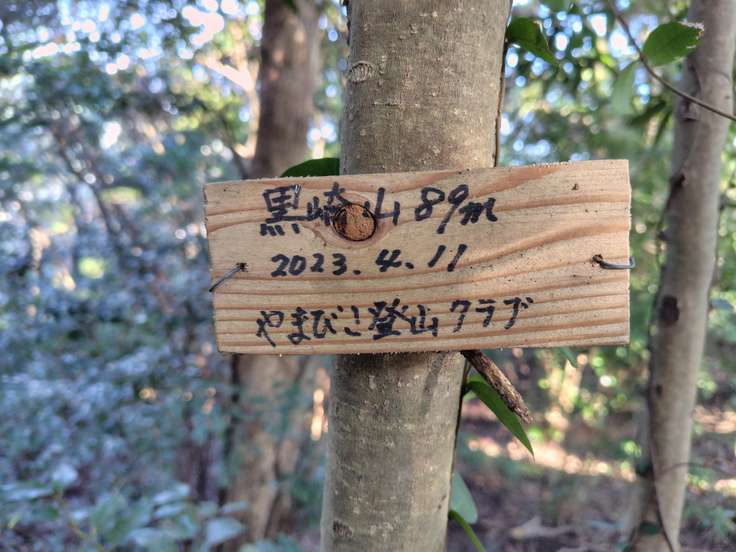 黒崎山 89m
2023.4.11
やまびこ登山クラブ